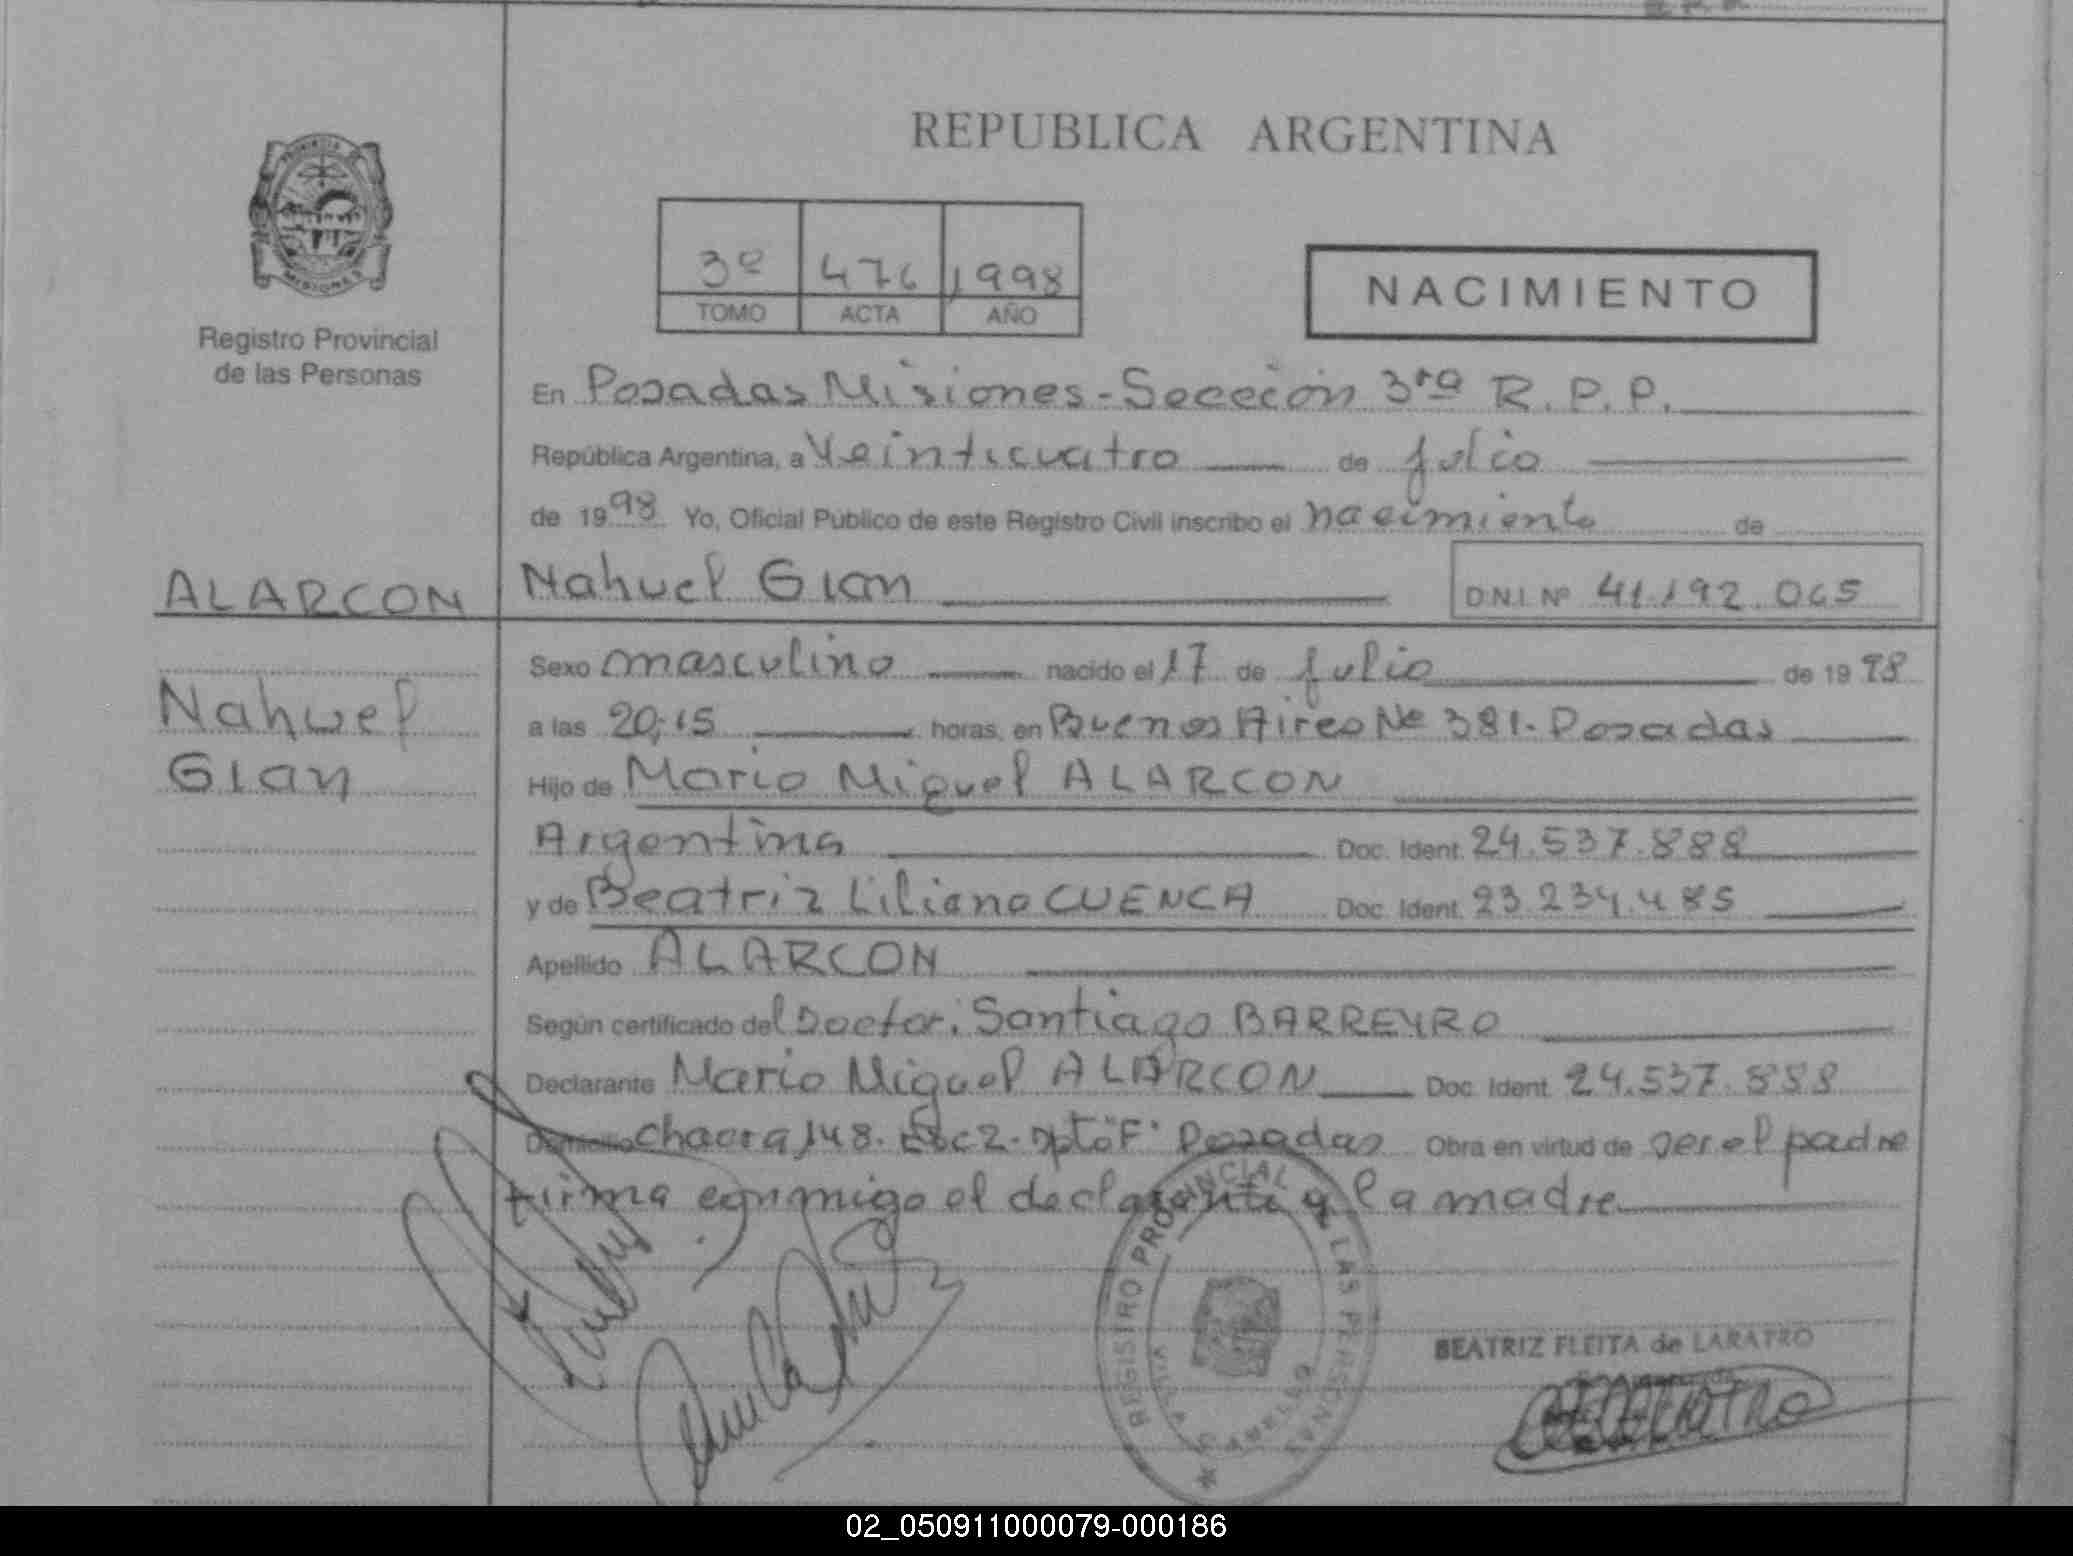 REPUBLICA ARGENTINA
PROVINCIA DE
MISIONES
Registro Provincial
de las Personas
3º 476 1998
TOMO ACTA AÑO
NACIMIENTO
En Posadas Misiones - Sección 3ra R.P.P.
República Argentina, a Veinticuatro de julio
de 1998 Yo, Oficial Público de este Registro Civil inscribo el nacimiento de
ALARCON Nahuel Gian D.N.I. Nº 41.192.065
Sexo masculino nacido el 17 de julio de 1998
Nahuel
Gian
a las 20,15 horas, en Buenos Aires Nº 381 - Posadas
Hijo de Mario Miguel ALARCON
Argentina Doc. Ident. 24.537.888
y de Beatriz Liliana CUENCA Doc. Ident. 23.234.485
Apellido ALARCON
Según certificado del Doctor: Santiago BARREYRO
Declarante Mario Miguel ALARCON Doc. Ident. 24.537.888
Domicilio Chacra 148. Esc 2. Dpto "F" Posadas Obra en virtud de ser el padre
firma conmigo el declarante y la madre
REGISTRO PROVINCIAL DE LAS PERSONAS
BEATRIZ FLEITA de LARATRO
02_050911000079-000186